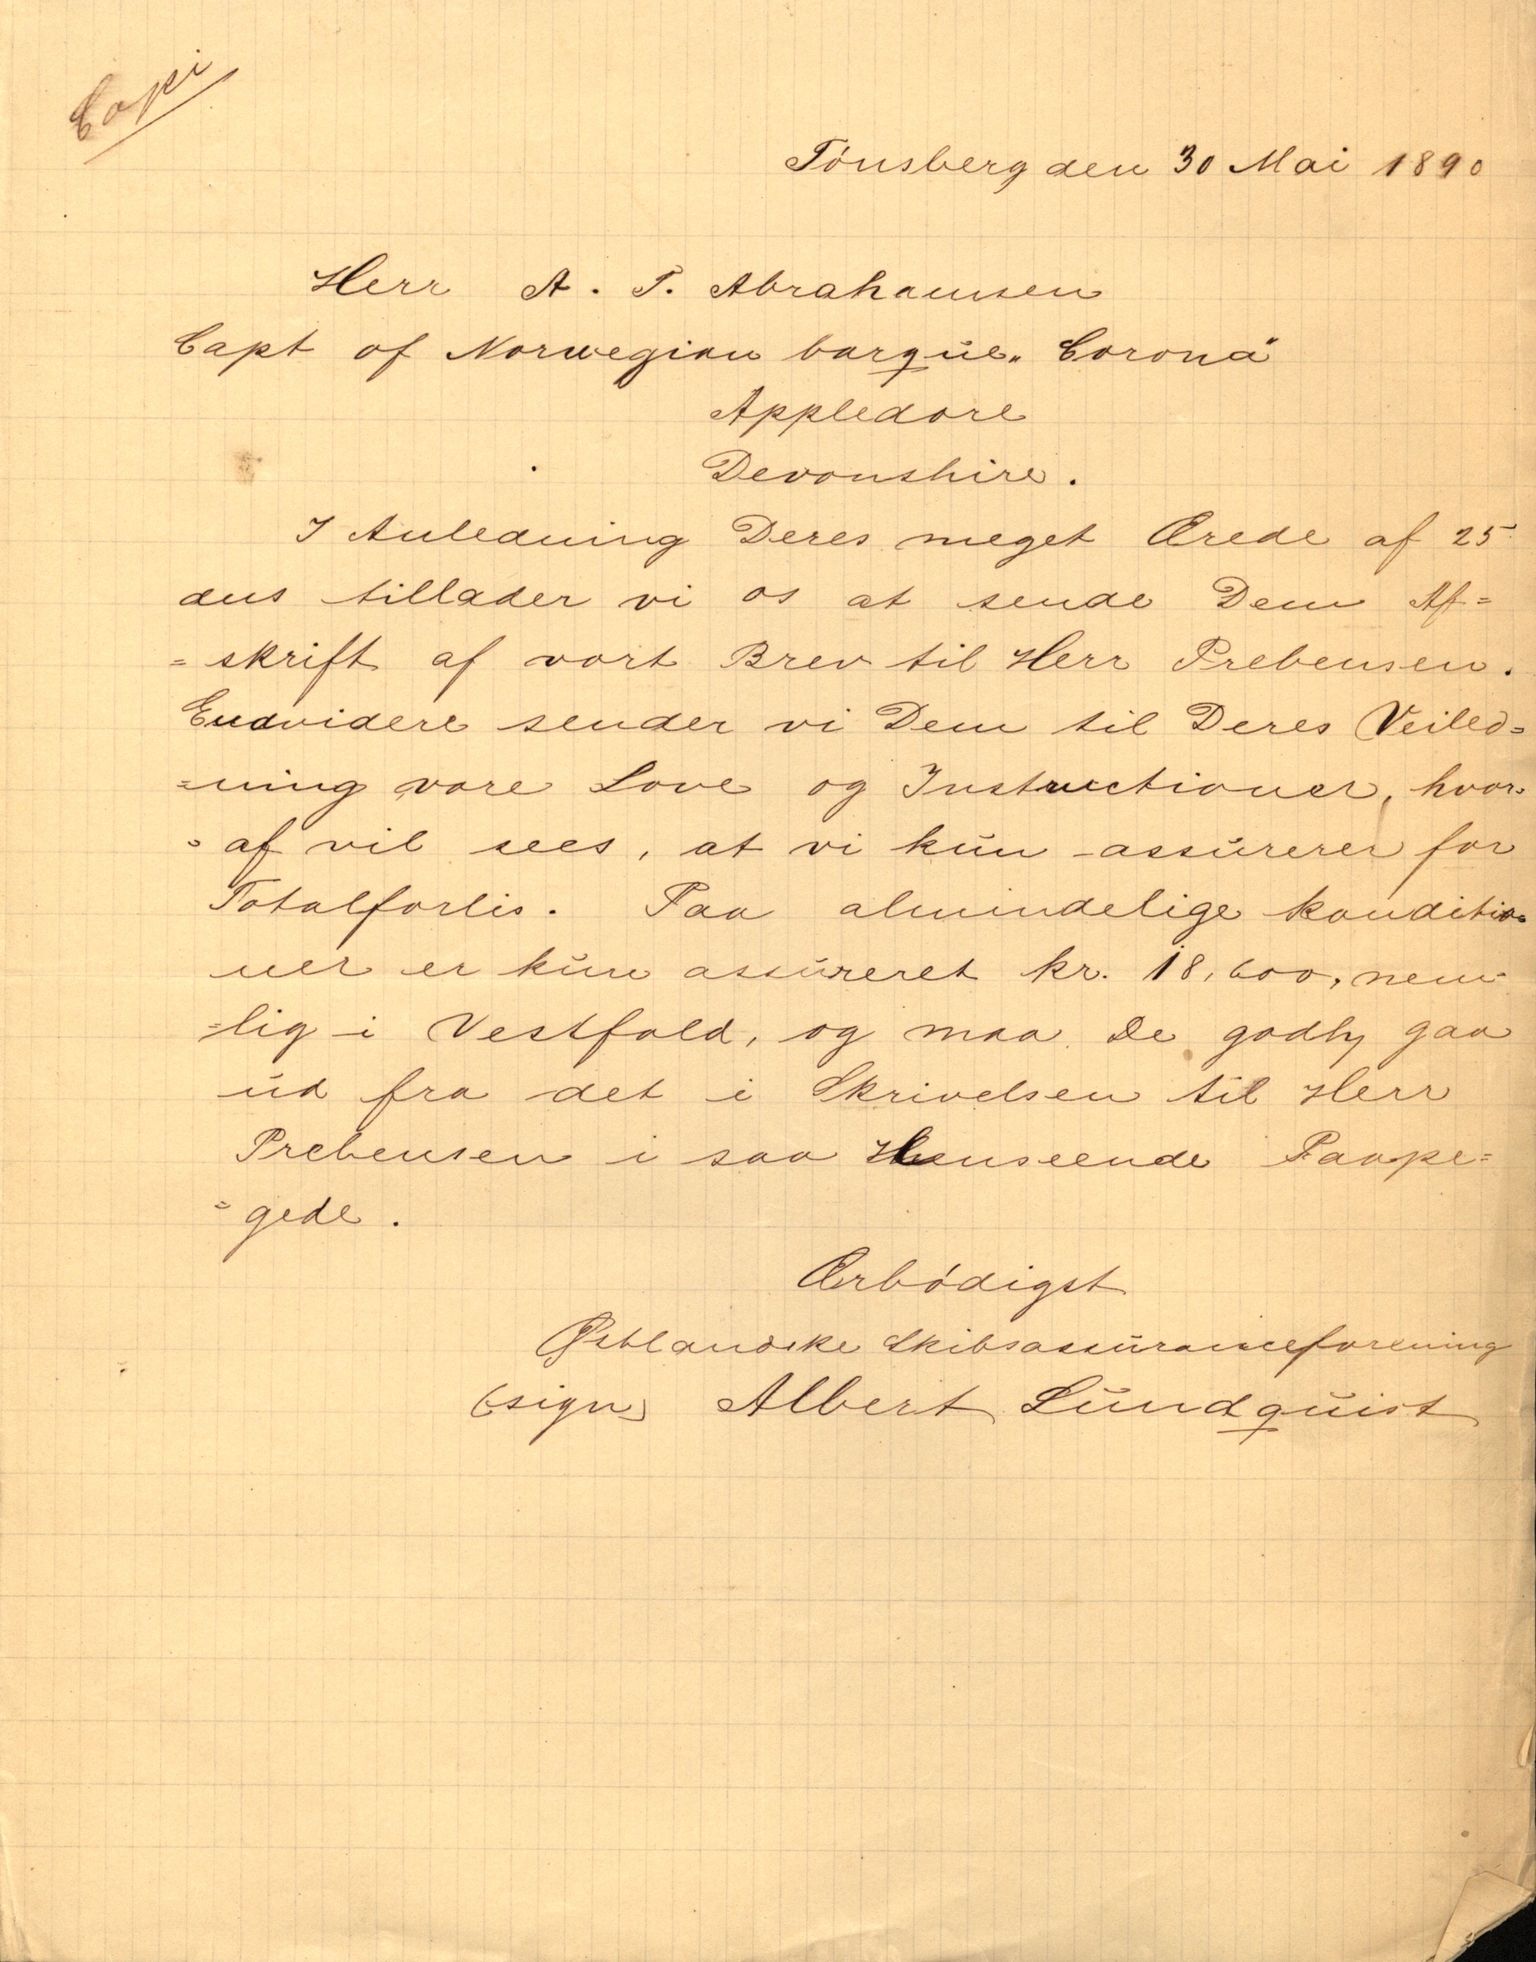 Copi
Tónsberg den 30 Mai 1890
Herr A. T. Abrahamsen
Capt of Norwegian barque „Corona"
Appledore
Devonshire.
I Anledning Deres meget Ærede af 25
ds tillader vi os at sende Dem Af=
=skrift af vort Brev til Herr Prebensen.
Endvidere sender vi Dem til Deres Veiled=
=ning vore Love og Instructioner, hvor=
=af vil sees, at vi kŭn assŭrerer for
Totalforlis. Paa almindelige konditio=
ner er kŭn assŭreret kr. 18,600, nem=
=lig i Vestfold, og maa De godhj gaa
ŭd fra det i Skrivelsen til Herr
Prebensen i saa Henseende Paape=
=gede.
Ærbódigst
Østlandske Skibsassŭranceforening
(sign) Albert Lŭndqŭist